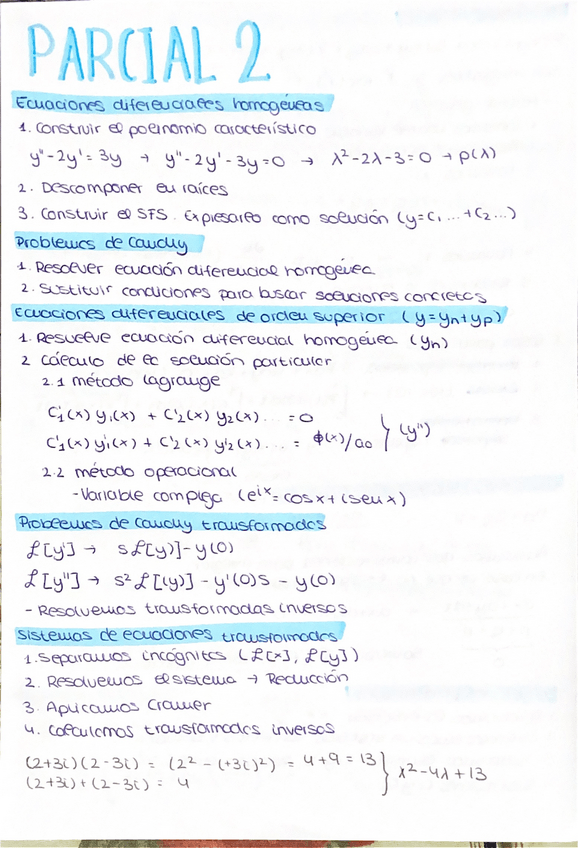 PARCIAL 2
Ecuaciones diferenciales homogéneas
1. Construir el polinomio característico
y''-2y'=3y → y''-2y'-3y=0 → λ²-2λ-3=0 → p(λ)
2. Descomponer en raíces
3. Construir el SFS. Expresarlo como solución (y=C₁...+C₂...)
Problemas de Cauchy
1. Resolver ecuación diferencial homogénea
2. Sustituir condiciones para buscar soluciones concretas
Ecuaciones diferenciales de orden superior (y=yh+yp)
1. Resuelve ecuación diferencial homogénea (yh)
2 Cálculo de la solución particular
2.1 método Lagrange
C'₁(x) y₁(x) + C'₂(x) y₂(x)... = 0
C'₁(x) y'₁(x) + C'₂(x) y'₂(x)... = ϕ(x)/a₀ } (y'')
2.2 método operacional
-Variable compleja (e^ix = cosx + isenx)
Problemas de Cauchy transformadas
ℒ[y'] → sℒ[y)]-y(0)
ℒ[y''] → s²ℒ[(y)] - y'(0)s - y(0)
- Resolvemos transformadas inversas
Sistemas de ecuaciones transformadas
1. Separamos incógnitas (ℒ[x], ℒ[y])
2. Resolvemos el sistema → Reducción
3. Aplicamos Cramer
4. Calculamos transformadas inversas
(2+3i)(2-3i) = (2² - (+3i)²) = 4+9 = 13 } λ²-4λ+13
(2+3i)+(2-3i) = 4